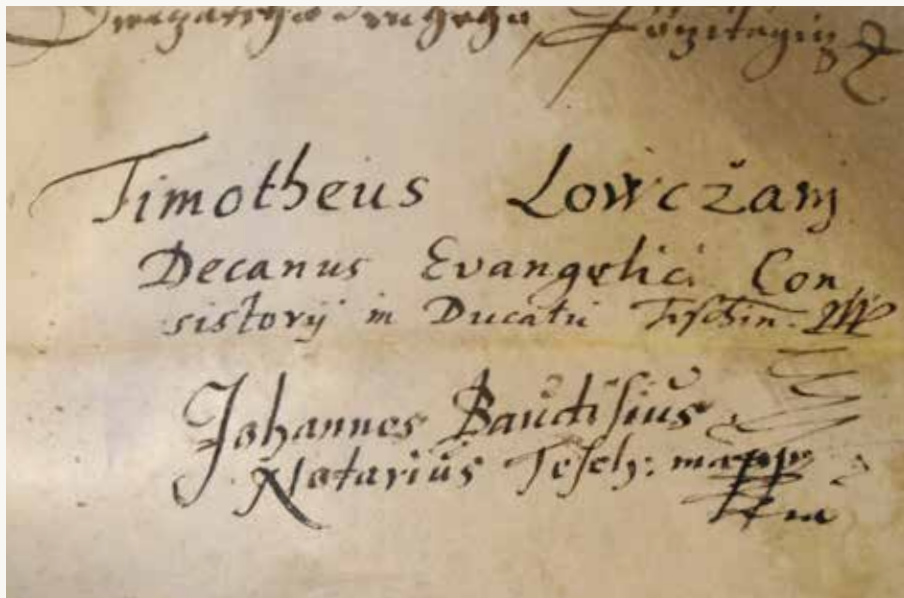 Timotheus Lowczanj
Decanus Evangelici Con
sistorij in Ducatu Teschin.
Johannes Baudisius
Notarius Tesch: mãpp